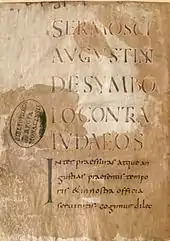 SERMO SCI
AVGVSTINI
DE SYMBO
LO CONTRA
IVDAEOS
Inter praessuras atque an
gustias praesentis tempo
ris & nostra officia
seruitutis cogimur dilec